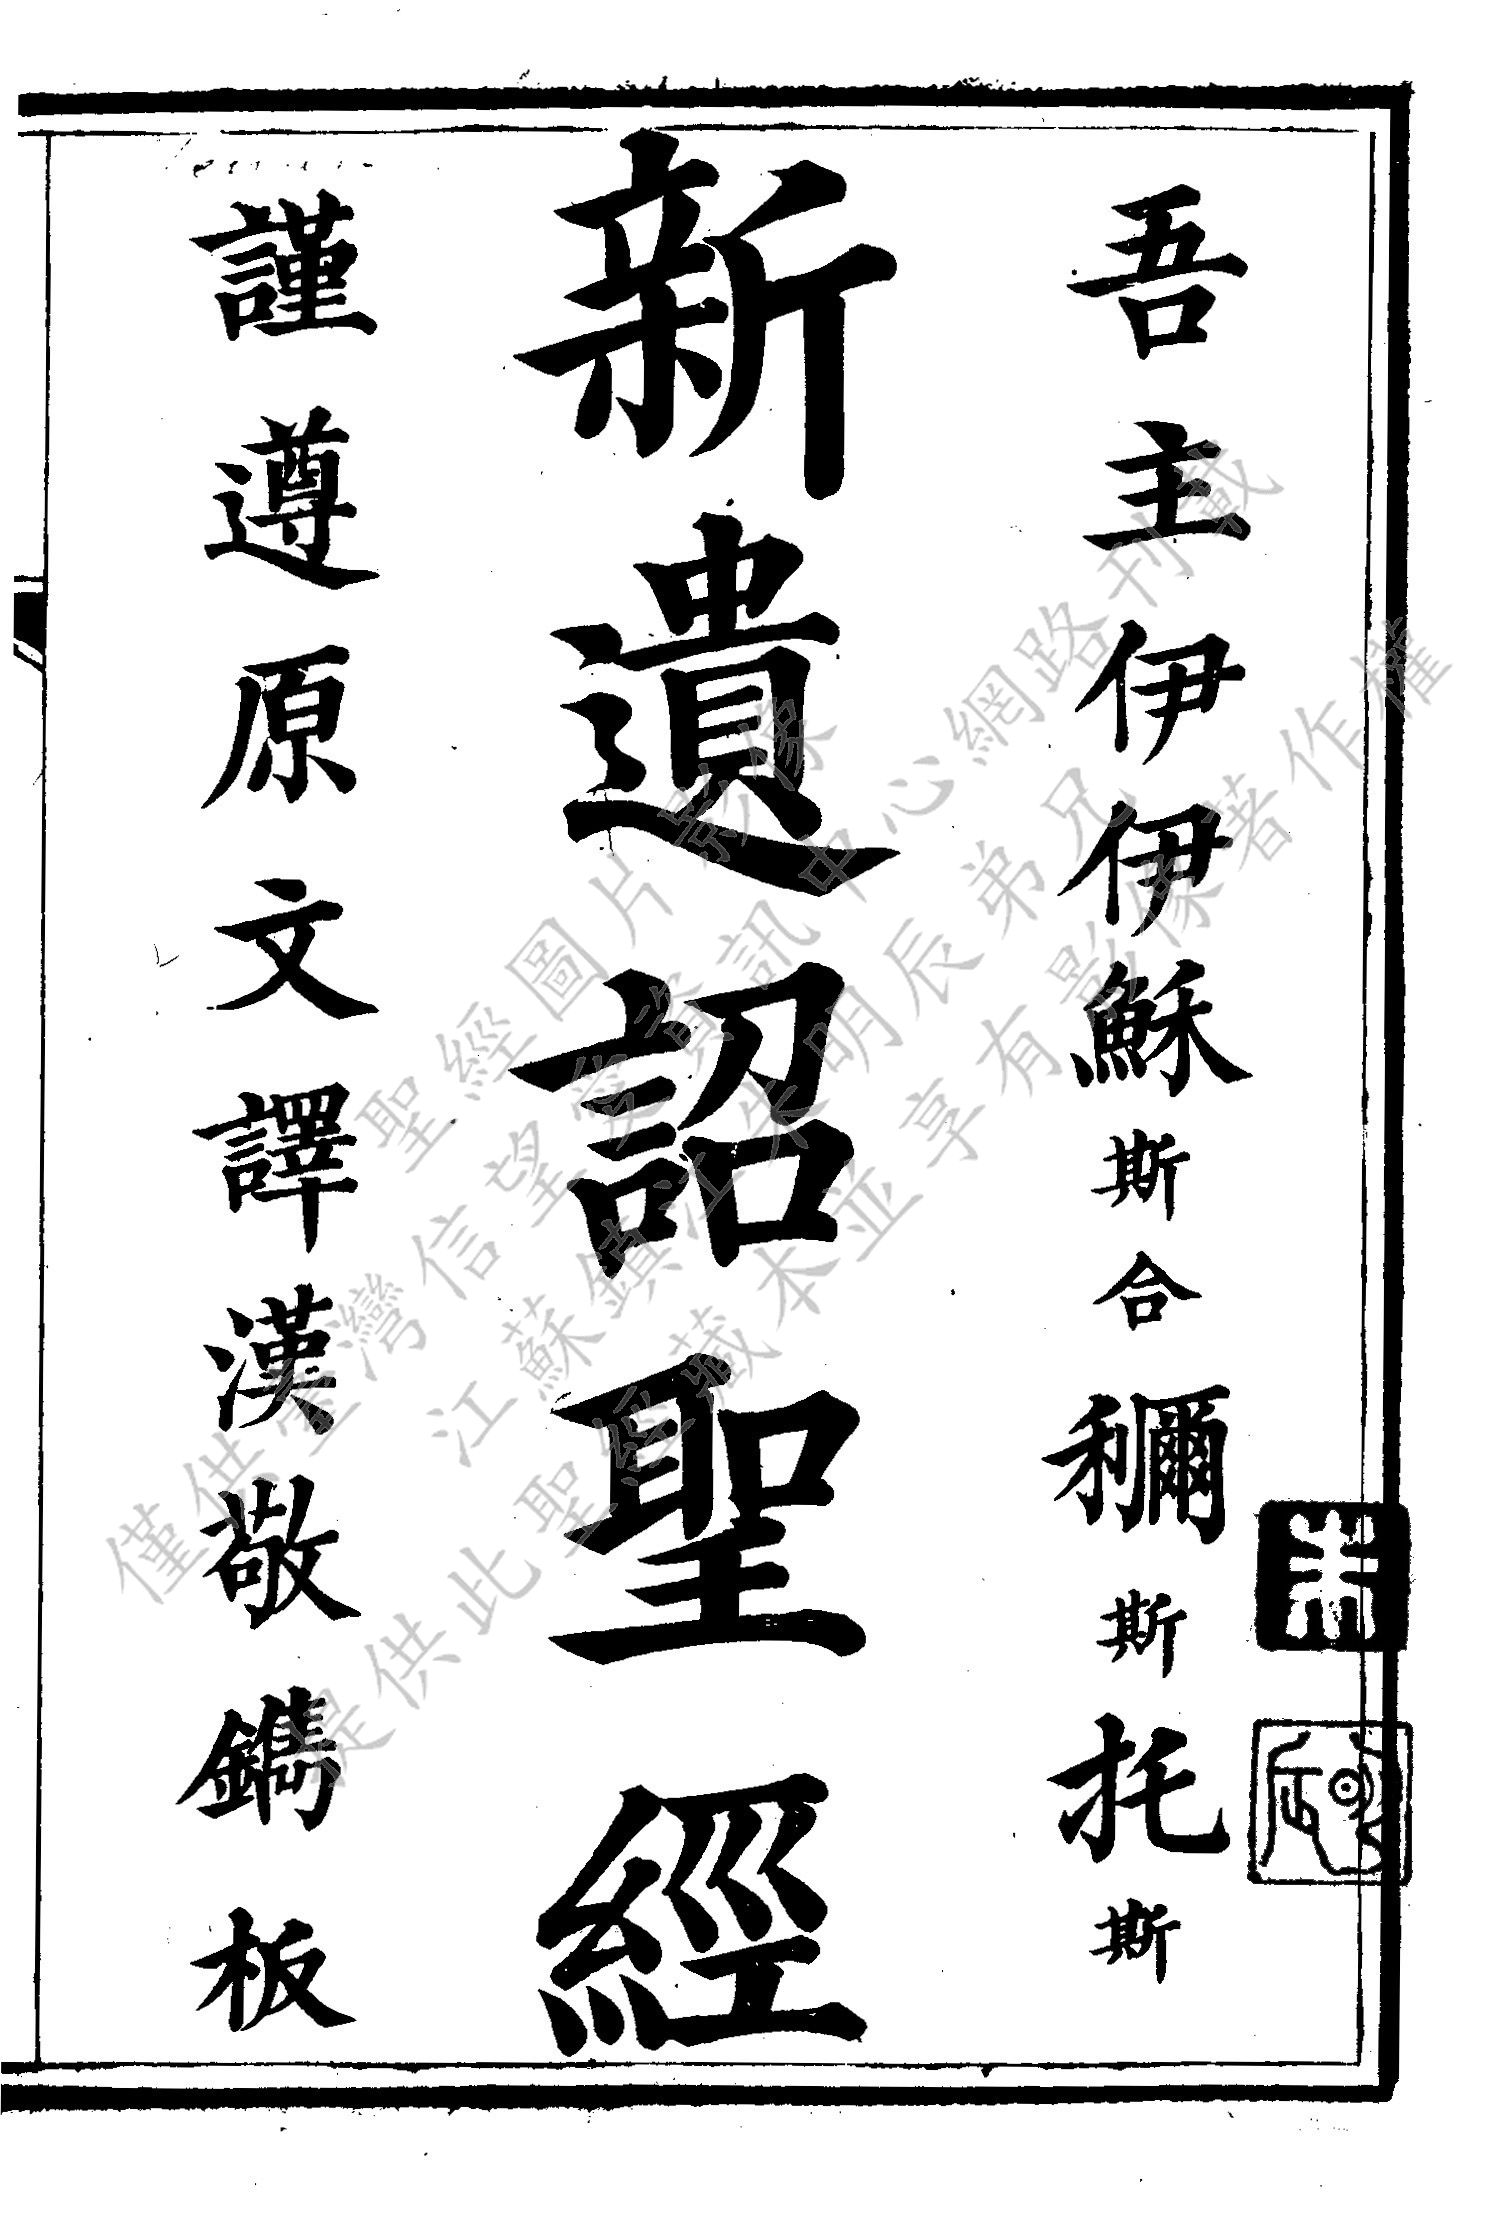 吾主伊伊穌斯合利爾斯托斯
新遺詔聖經
謹遵原文譯漢敬鐫板
聖經圖片影像
僅供臺灣信望愛資訊中心網路刊載
江蘇鎮江朱明辰弟兄
提供此聖經藏本並享有影像著作權